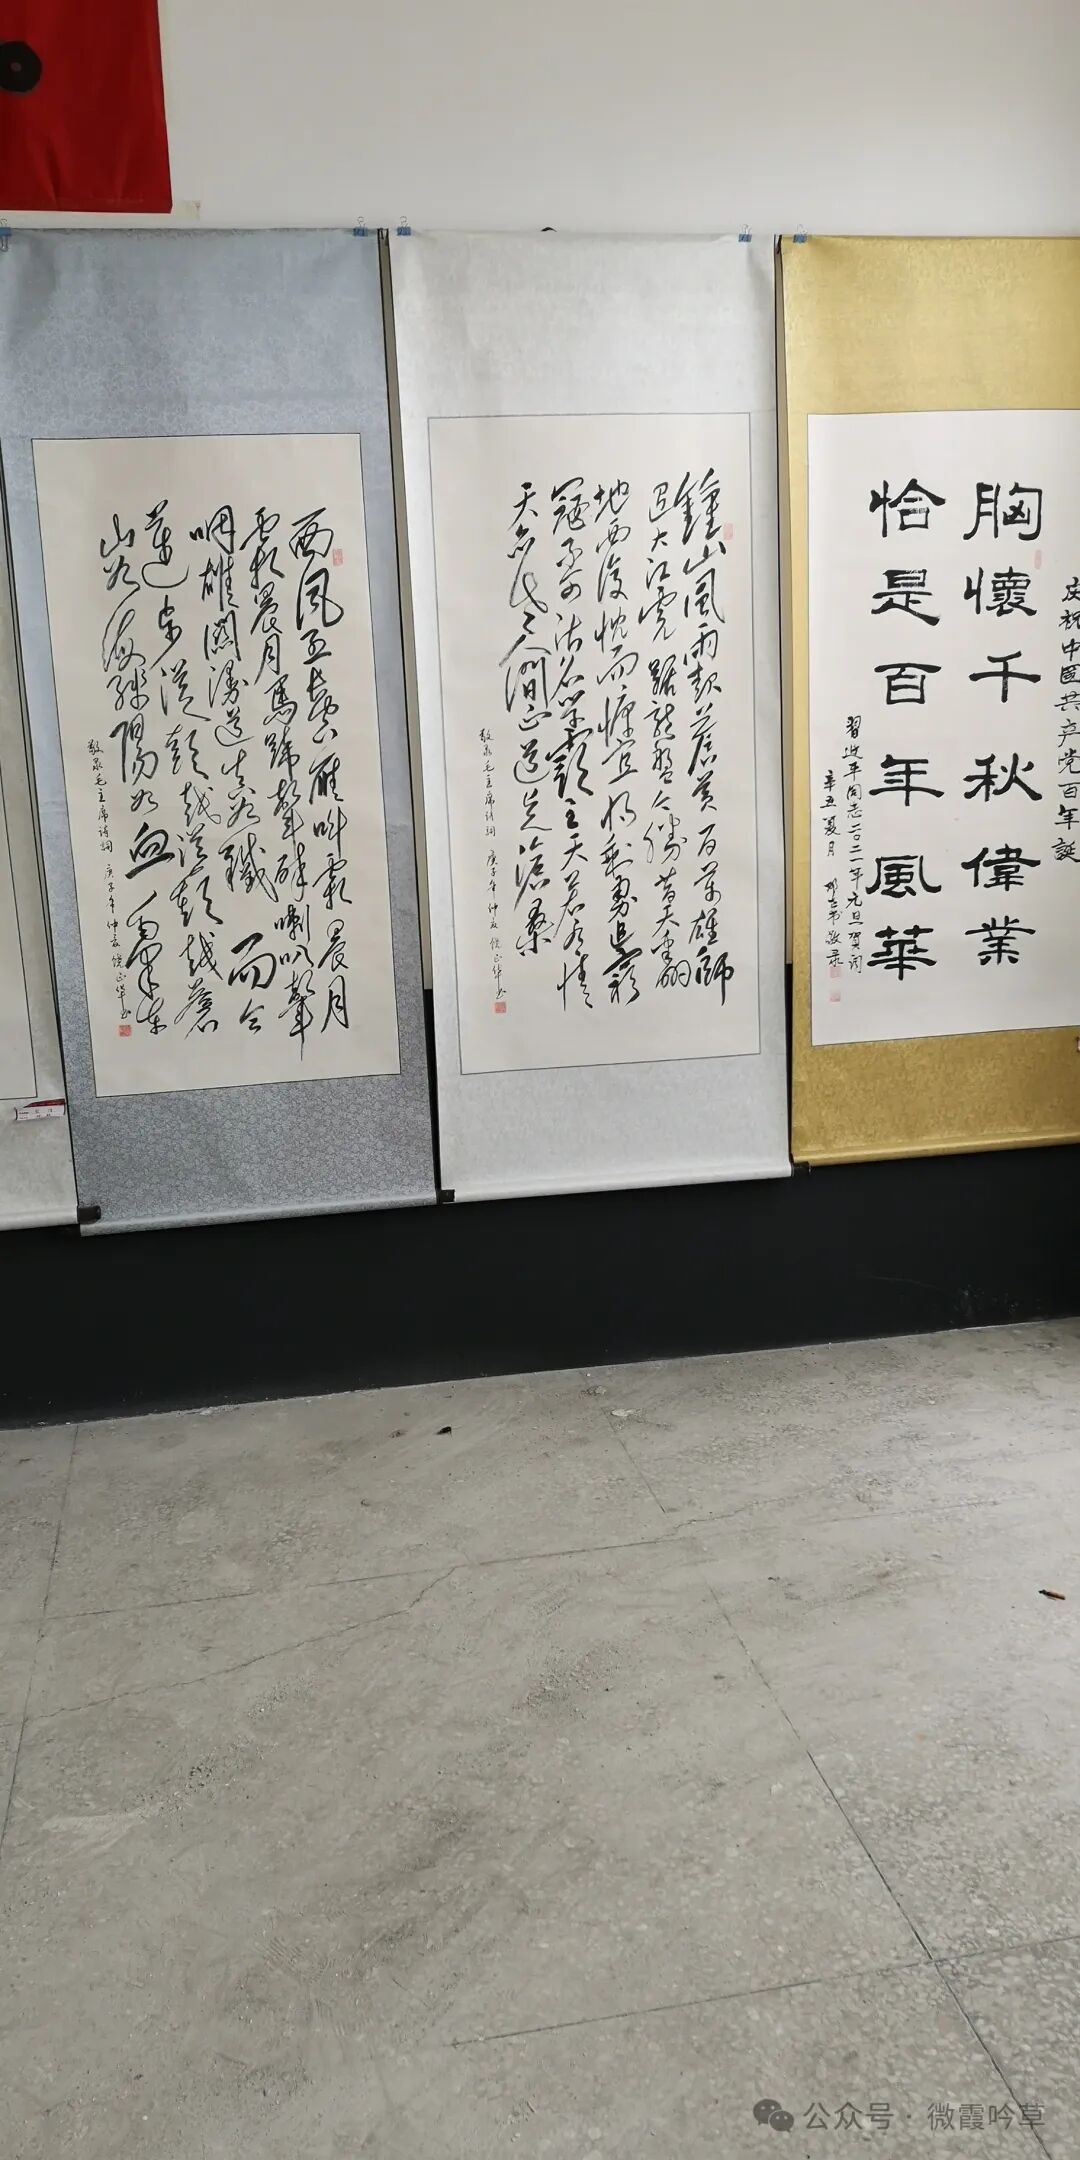 庆祝中国共产党百年誕
胸懷千秋偉業
恰是百年風華
習近平同志二〇二一年元旦贺词
辛丑夏月 敬录
鐘山風雨起蒼黄百萬雄師
過大江虎踞龍盤今勝昔天翻
地覆慨而慷宜將剩勇追窮
寇不可沽名學霸王天若有情
天亦老人間正道是滄桑
敬录毛主席诗詞 庚子年仲夏饶正华书
西風烈長空雁叫霜晨月
霜晨月馬蹄聲碎喇叭聲
咽雄關漫道真如鐵而今
邁步從頭越從頭越蒼
山如海殘陽如血
敬录毛主席诗詞 庚子年仲夏饶正华书
公众号·微霞吟草